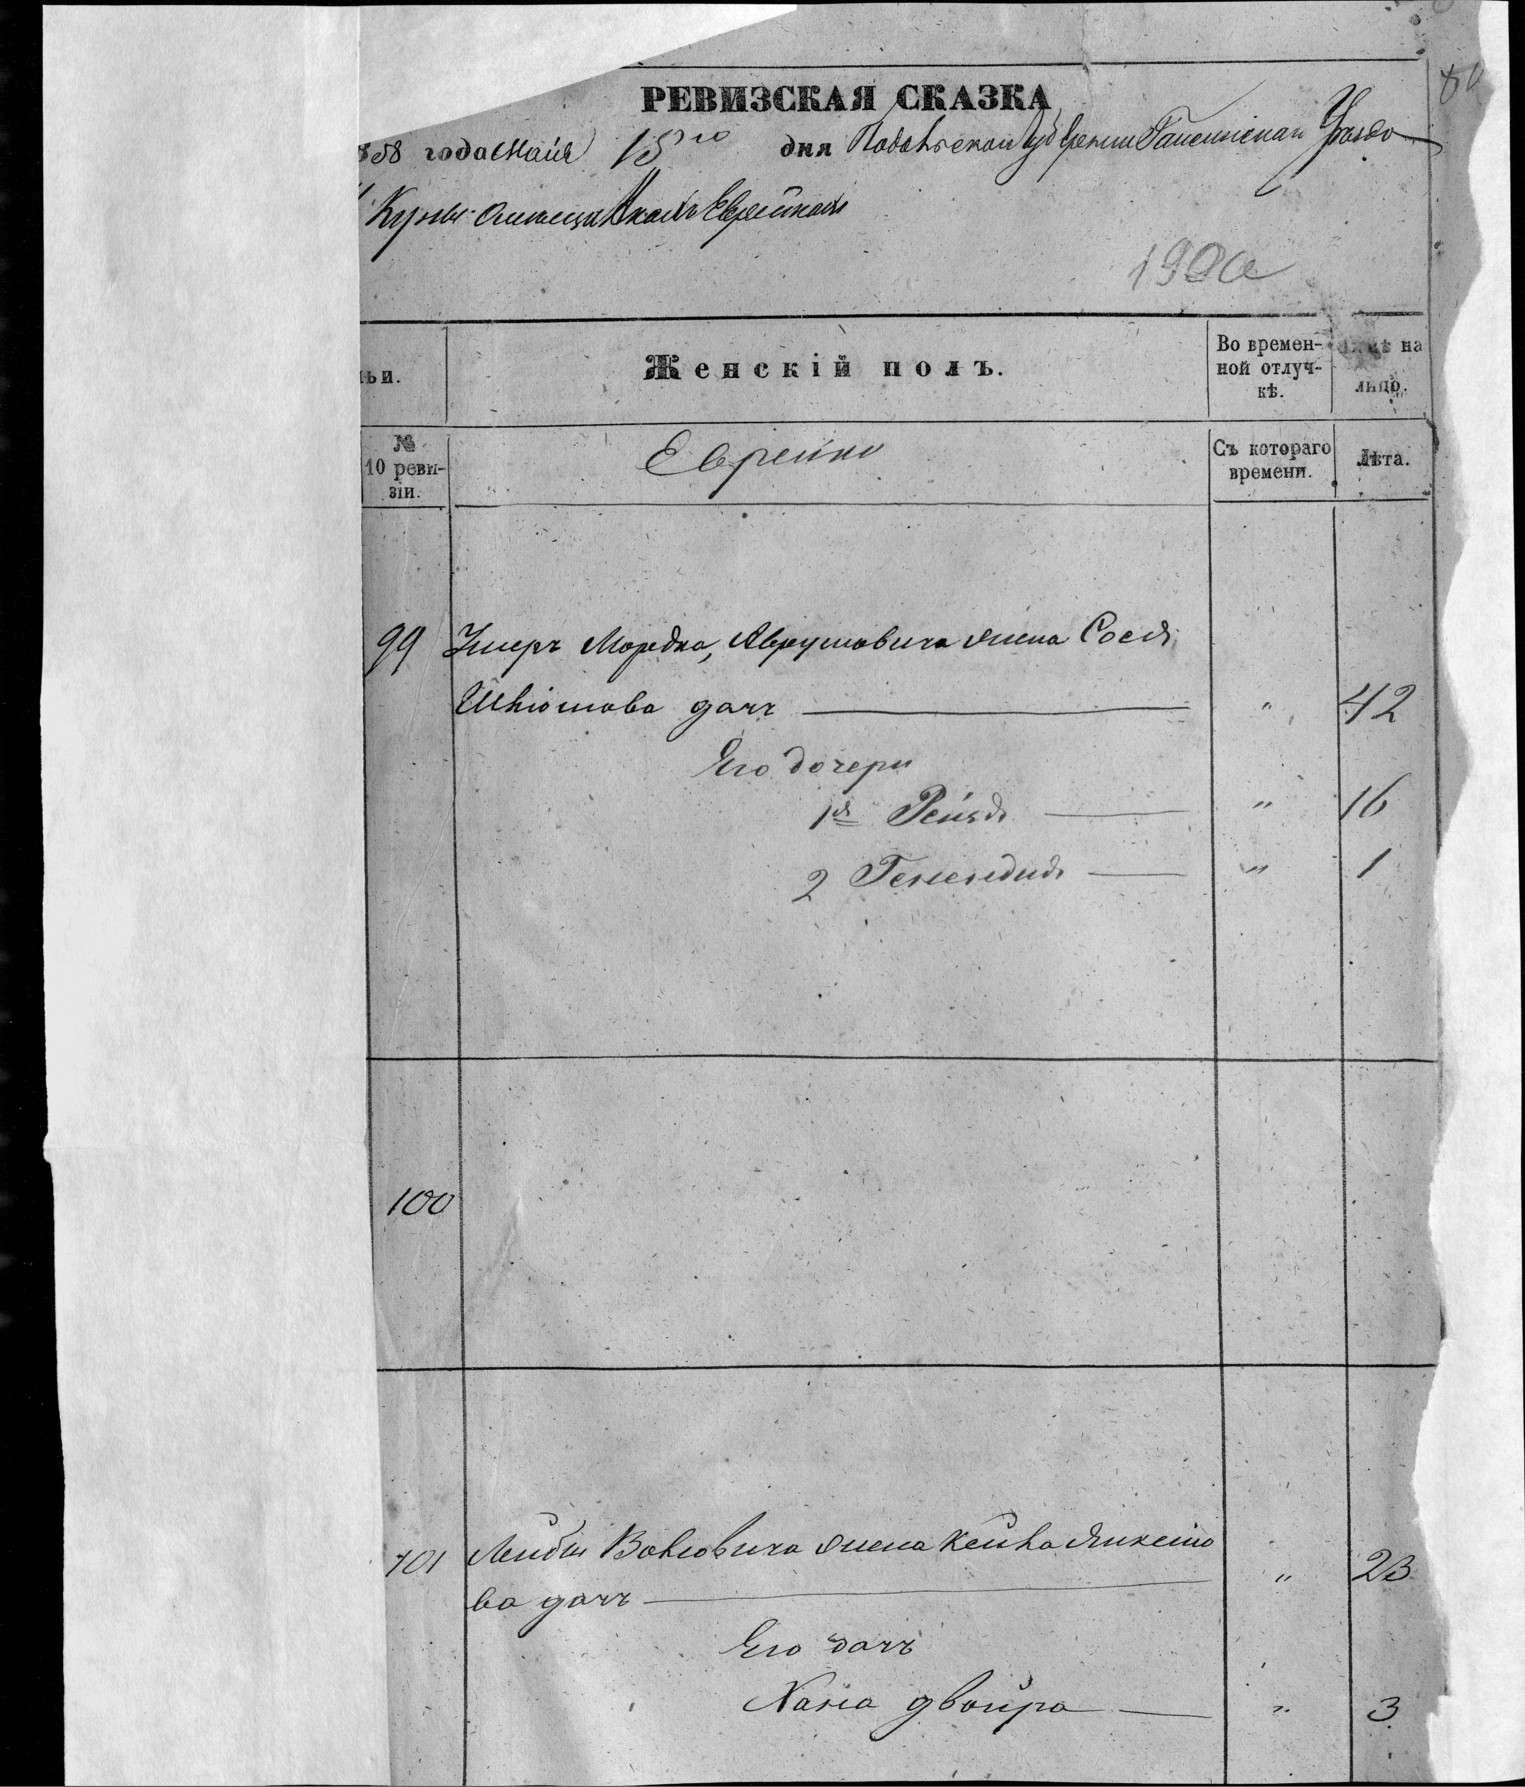 РЕВИЗСКАЯ СКАЗКА
858 года Мая 15го дня Подольской Губернии Гайсинского Уезда
Куны о мещанахъ Евреяхъ
190а
ьи.
Женскій полъ.
Во времен-
ной отлуч-
кѣ.
на
лицо.
№
10 реви-
зіи.
Еврейки
Съ котораго
времени.
Лѣта.
99 Умеръ Мордка, Аврумовича жена Сося
Шлiомова дочь " 42
Его дочери
1я Рейзя " 16
2 Генендия " 1
100
101 Лейбы Волковича жена Кейла Янкелю
ва дочь " 23
Его дочь
Хана двойра " 3